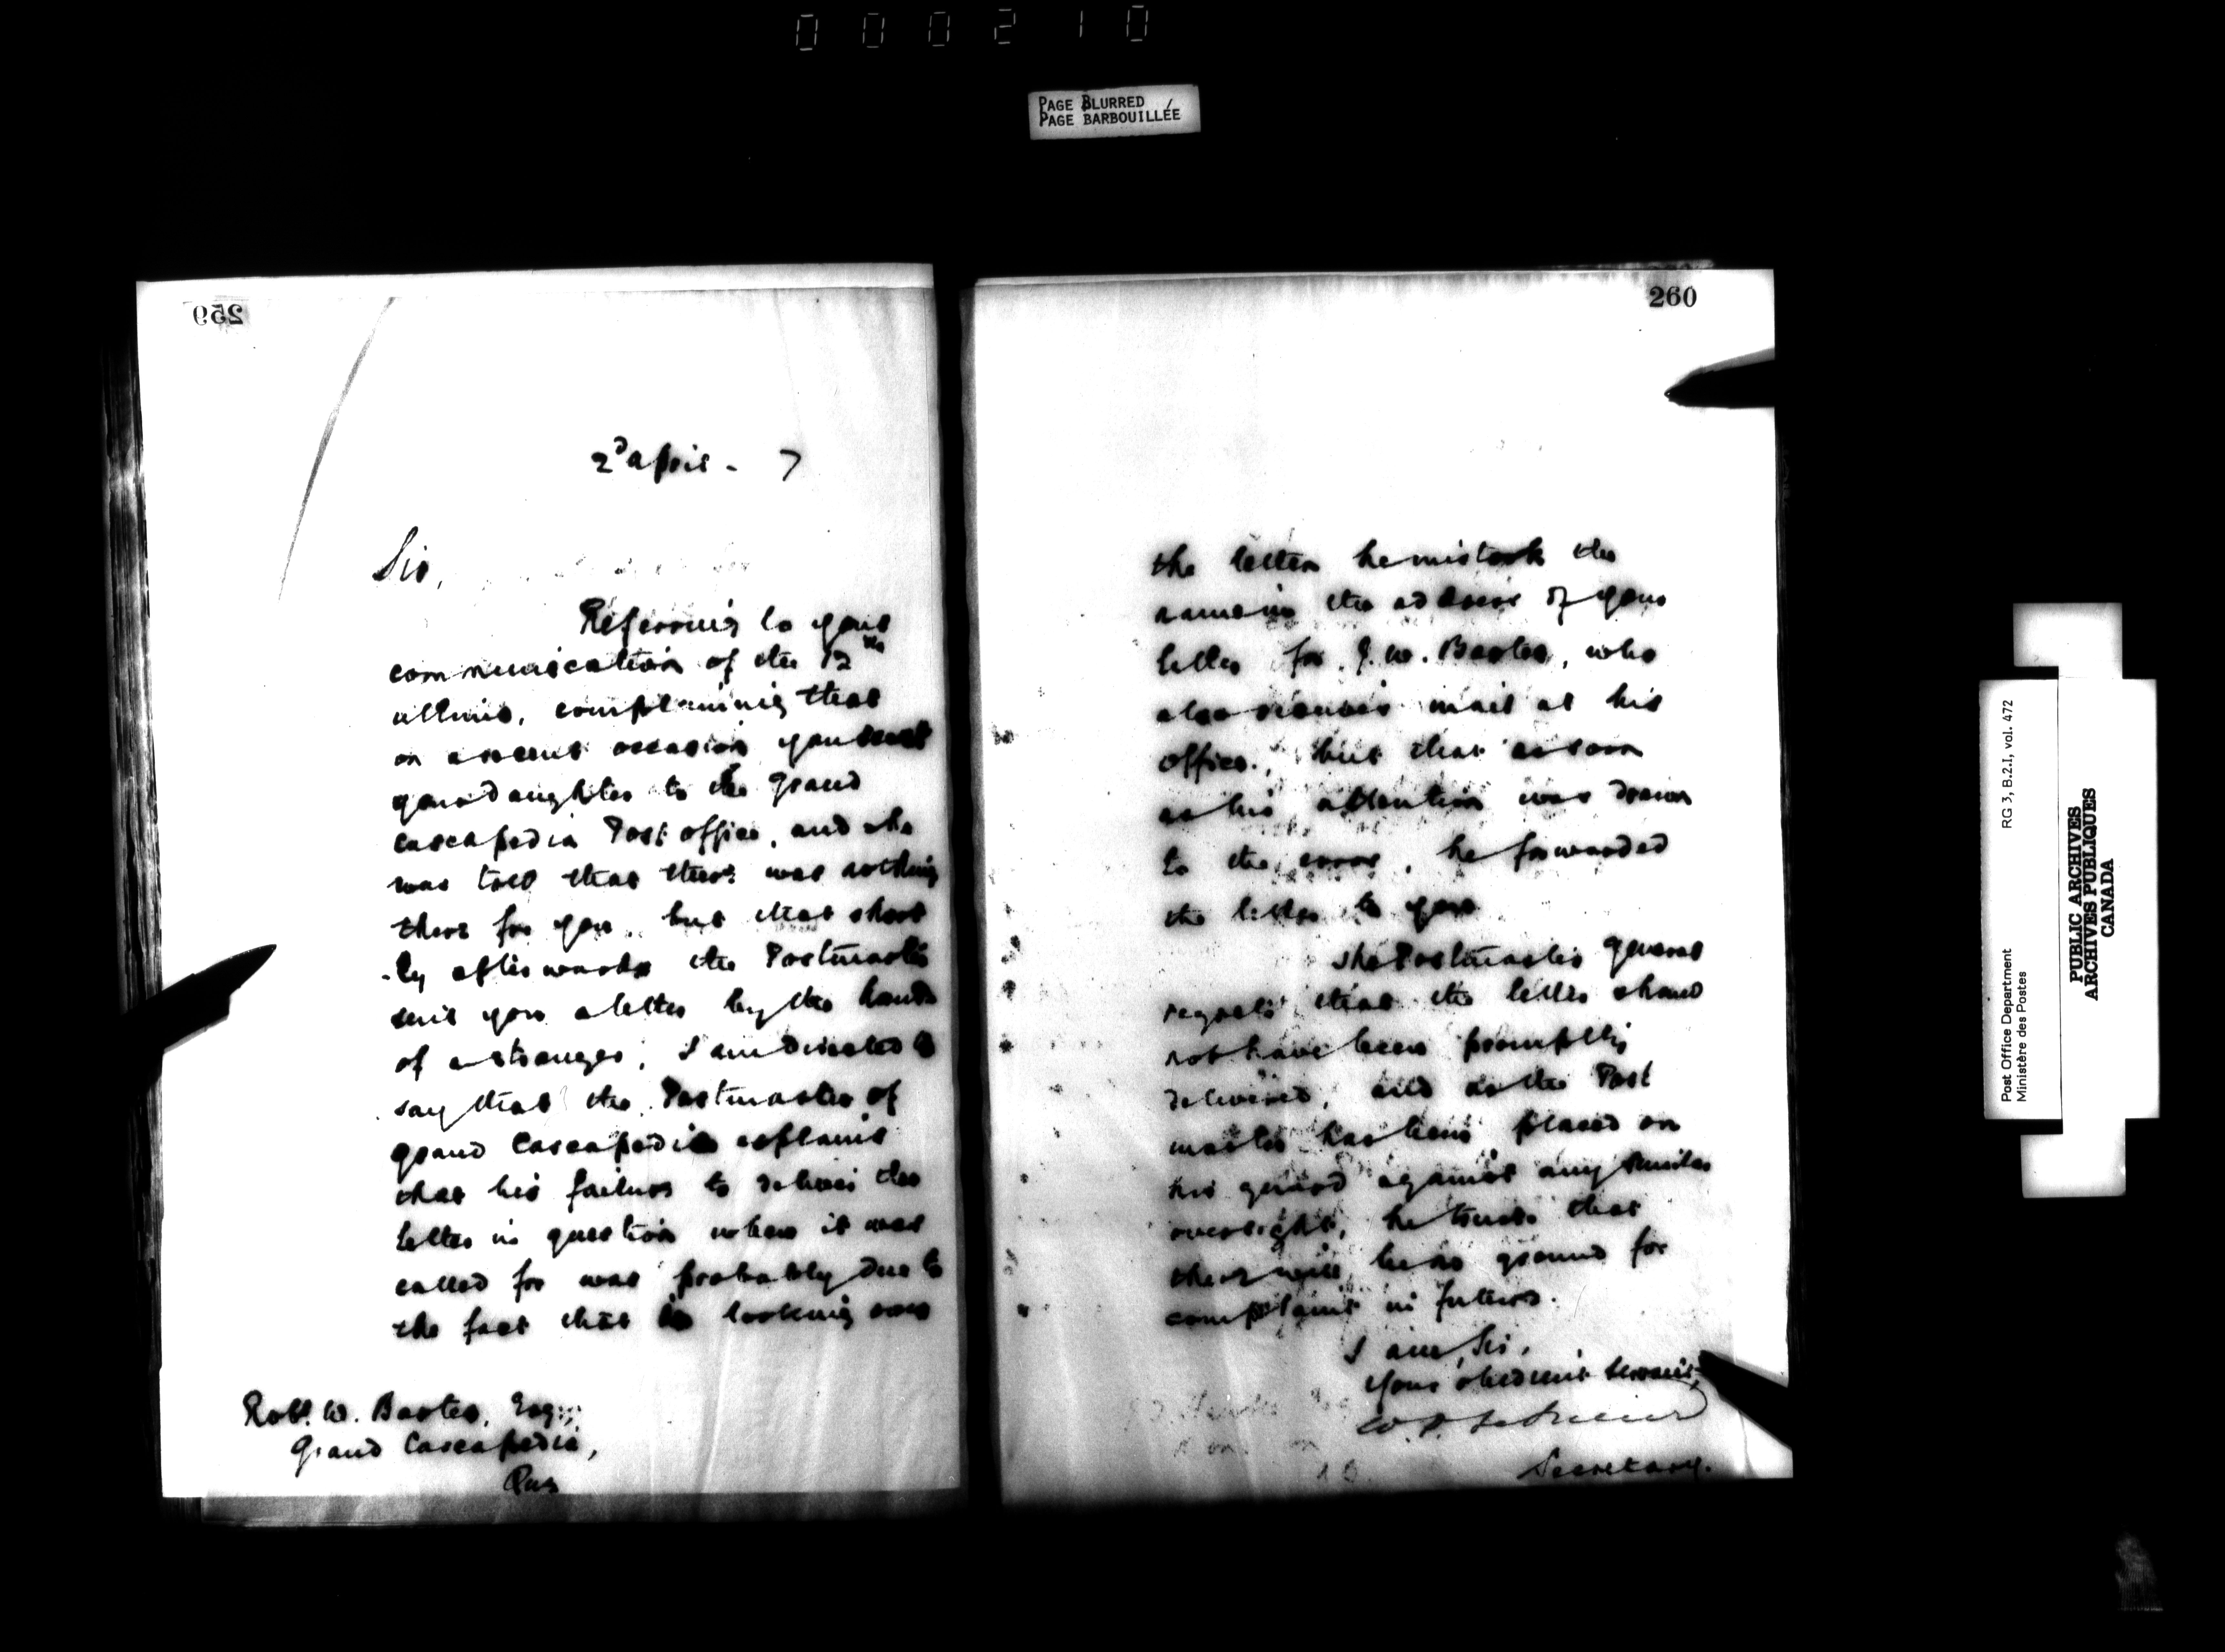 000210
PAGE BLURRED
PAGE BARBOUILLÉE
259
2d April - 7
Sir,
Referring to your
communication of the 12th
ultimo, complaining that
on a recent occasion you sent
your daughter to the Grand
Cascapedia Post office, and she
was told that there was nothing
there for you, but that short
-ly afterwards the Postmaster
sent you a letter by the hands
of a stranger, I am directed to
say that the Postmaster of
Grand Cascapedia explains
that his failure to deliver the
letter in question when it was
called for was probably due to
the fact that in looking over
Robt. W. Barter, Esq.,
Grand Cascapedia,
Que
260
the letters he mistook the
name in the address of your
letter for J. W. Barter, who
also receives mail at his
office, but that as soon
as his attention was drawn
to the error, he forwarded
the letter to you
The Postmaster General
regrets that the letter should
not have been promptly
delivered, and as the Post
master has been placed on
his guard against any similar
oversight, he trusts that
there will be no ground for
complaint in future.
I am, Sir,
Your obedient Servant,
W. D. LeSueur
Secretary.
Post Office Department
Ministère des Postes
RG 3, B.2.I, vol. 472
PUBLIC ARCHIVES
ARCHIVES PUBLIQUES
CANADA